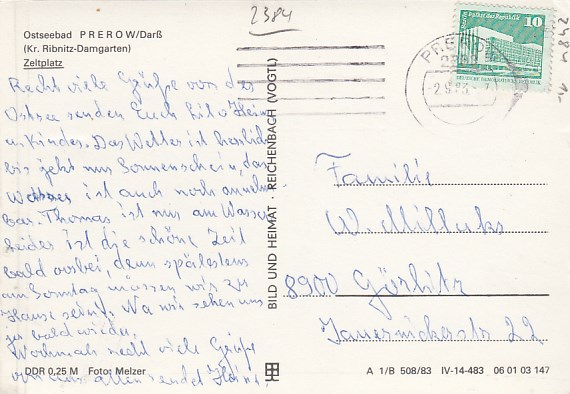 2384
Ostseebad PREROW/Darß
(Kr. Ribnitz-Damgarten)
Zeltplatz
Recht viele Grüße von der
Ostsee senden Euch Heinz
u. Kinder. Das Wetter ist herrlich
bis jetzt nur Sonnenschein, das
Wasser ist auch noch annehm-
bar. Thomas ist nur am Wasser
leider ist die schöne Zeit
bald vorbei, denn spätestens
am Sonntag müssen wir zu
Hause sein. Na wir sehen uns
ja bald wieder.
Nochmals recht viele Grüße
von uns allen sendet Heinz
DDR 0,25 M Foto: Melzer
BILD UND HEIMAT · REICHENBACH (VOGTL)
10
Palast der Republik
2484
Familie
W.
8900 Görlitz
22
A 1/B 508/83 IV-14-483 06 01 03 147